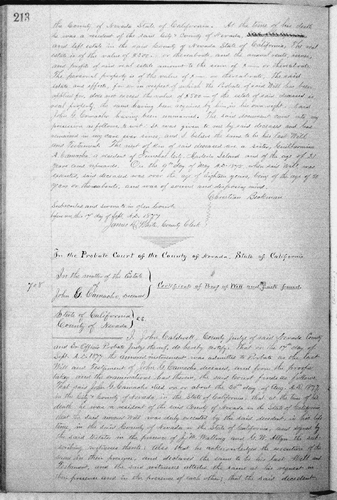 213
the County of Nevada State of California. At the time of his death
he was a resident of the said City & County of Nevada
and left estate in the said County of Nevada State of California. The real
estate is of the value of $200.00 or thereabouts, and the annual rents, issues
and profits of said real estate amount to the sum of $ or thereabouts.
The personal property is of the value of $ or thereabouts. The said
estate and effects, for or in respect of which the Probate of said Will has been
applied for, does not exceed the value of $200.00 the estate of said deceased is
real property the same having been acquired by him in his own right. Said
John G. Camache having been unmarried. The said deceased came into my
possession as follows to wit: It was given to me by said deceased and has
remained in my care ever since, and I believe the same to be his last Will
and Testament. The next of kin of said deceased are a sister,
A Camache, a resident of Island and of the age of 21
years or thereabouts. On the day of May A.D. 1877, when said Will was
executed, said deceased was over the age of eighteen years, being of the age of
years or thereabouts, and was of sound and disposing mind.
Christian Beekman
Subscribed and sworn to in open Court
before me this 17 day of Sept. A.D. 1877
James County Clerk
In the Probate Court of the County of Nevada, State of California
In the matter of the Estate
of
John G. Camache, deceased
Certificate of Proof of Will and facts found
State of California
County of Nevada ss.
I, John Caldwell, County Judge of said Nevada County
and Ex Officio Probate Judge thereof, do hereby certify: That on the 17th day of
Sept. A.D. 1877, the annexed instrument was admitted to Probate as the last
Will and Testament of John G. Camache, deceased, and from the proofs
taken and the examination had therein, the said Court finds as follows:
That said John G. Camache died on or about the day of Aug. A.D. 1877
in the City & County of Nevada, in the State of California; that at the time of his
death he was a resident of the said County of Nevada in the State of California
that the said annexed Will was duly executed by the said decedent in his life
time, in the said County of Nevada in the State of California, and signed by
the said testator in the presence of J. M. Walling and the sub
scribing witnesses thereto; also that he acknowledged the execution of the
same in their presence, and declared the same to be his last Will and
Testament, and the said witnesses attested the same at his request in
his presence and in the presence of each other; that the said decedent